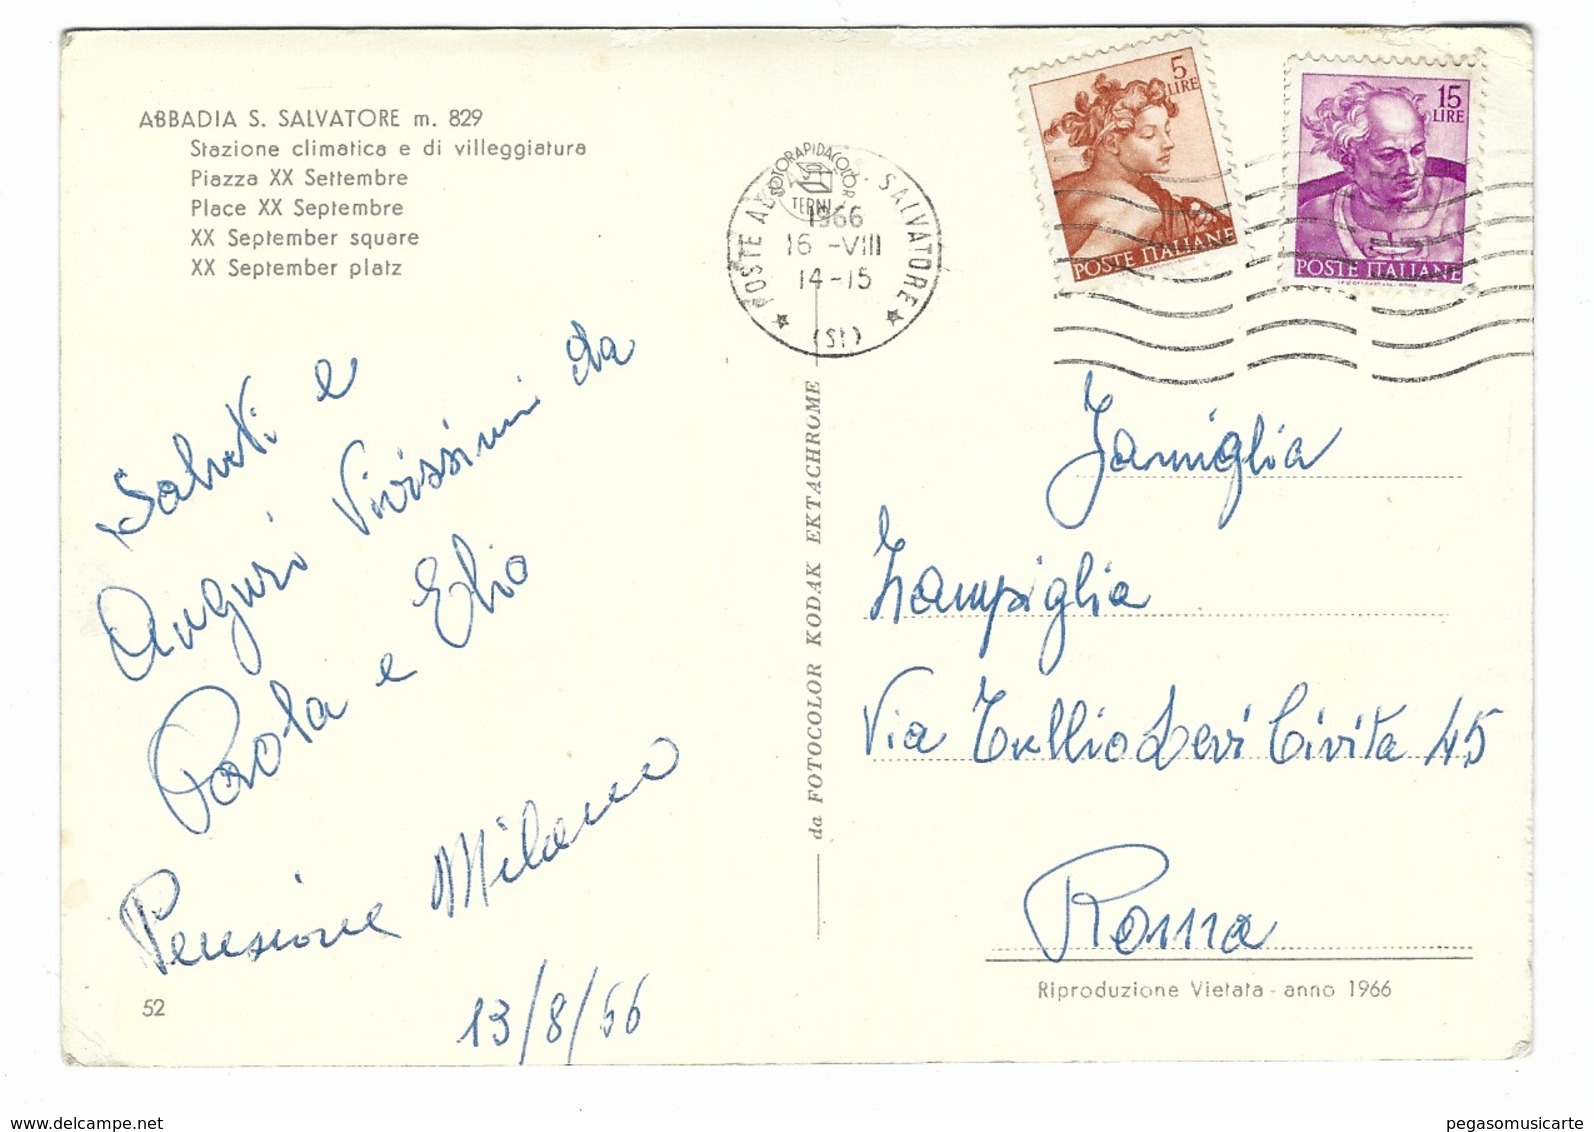 ABBADIA S. SALVATORE m. 829
Stazione climatica e di villeggiatura
Piazza XX Settembre
Place XX Septembre
XX September square
XX September platz
Saluti e
Auguri Vivissimi da
Paola e Elio
Pensione Milano
13/8/66
52
FOTORAPIDACOLOR
TERNI
POSTE AB S. SALVATORE
1966
16-VIII
14-15
(SI)
da FOTOCOLOR KODAK EKTACHROME
5
LIRE
POSTE ITALIANE
15
LIRE
POSTE ITALIANE
Famiglia
Zampiglia
Via Tullio Levi Civita 45
Roma
Riproduzione Vietata - anno 1966
pegasomusicarte